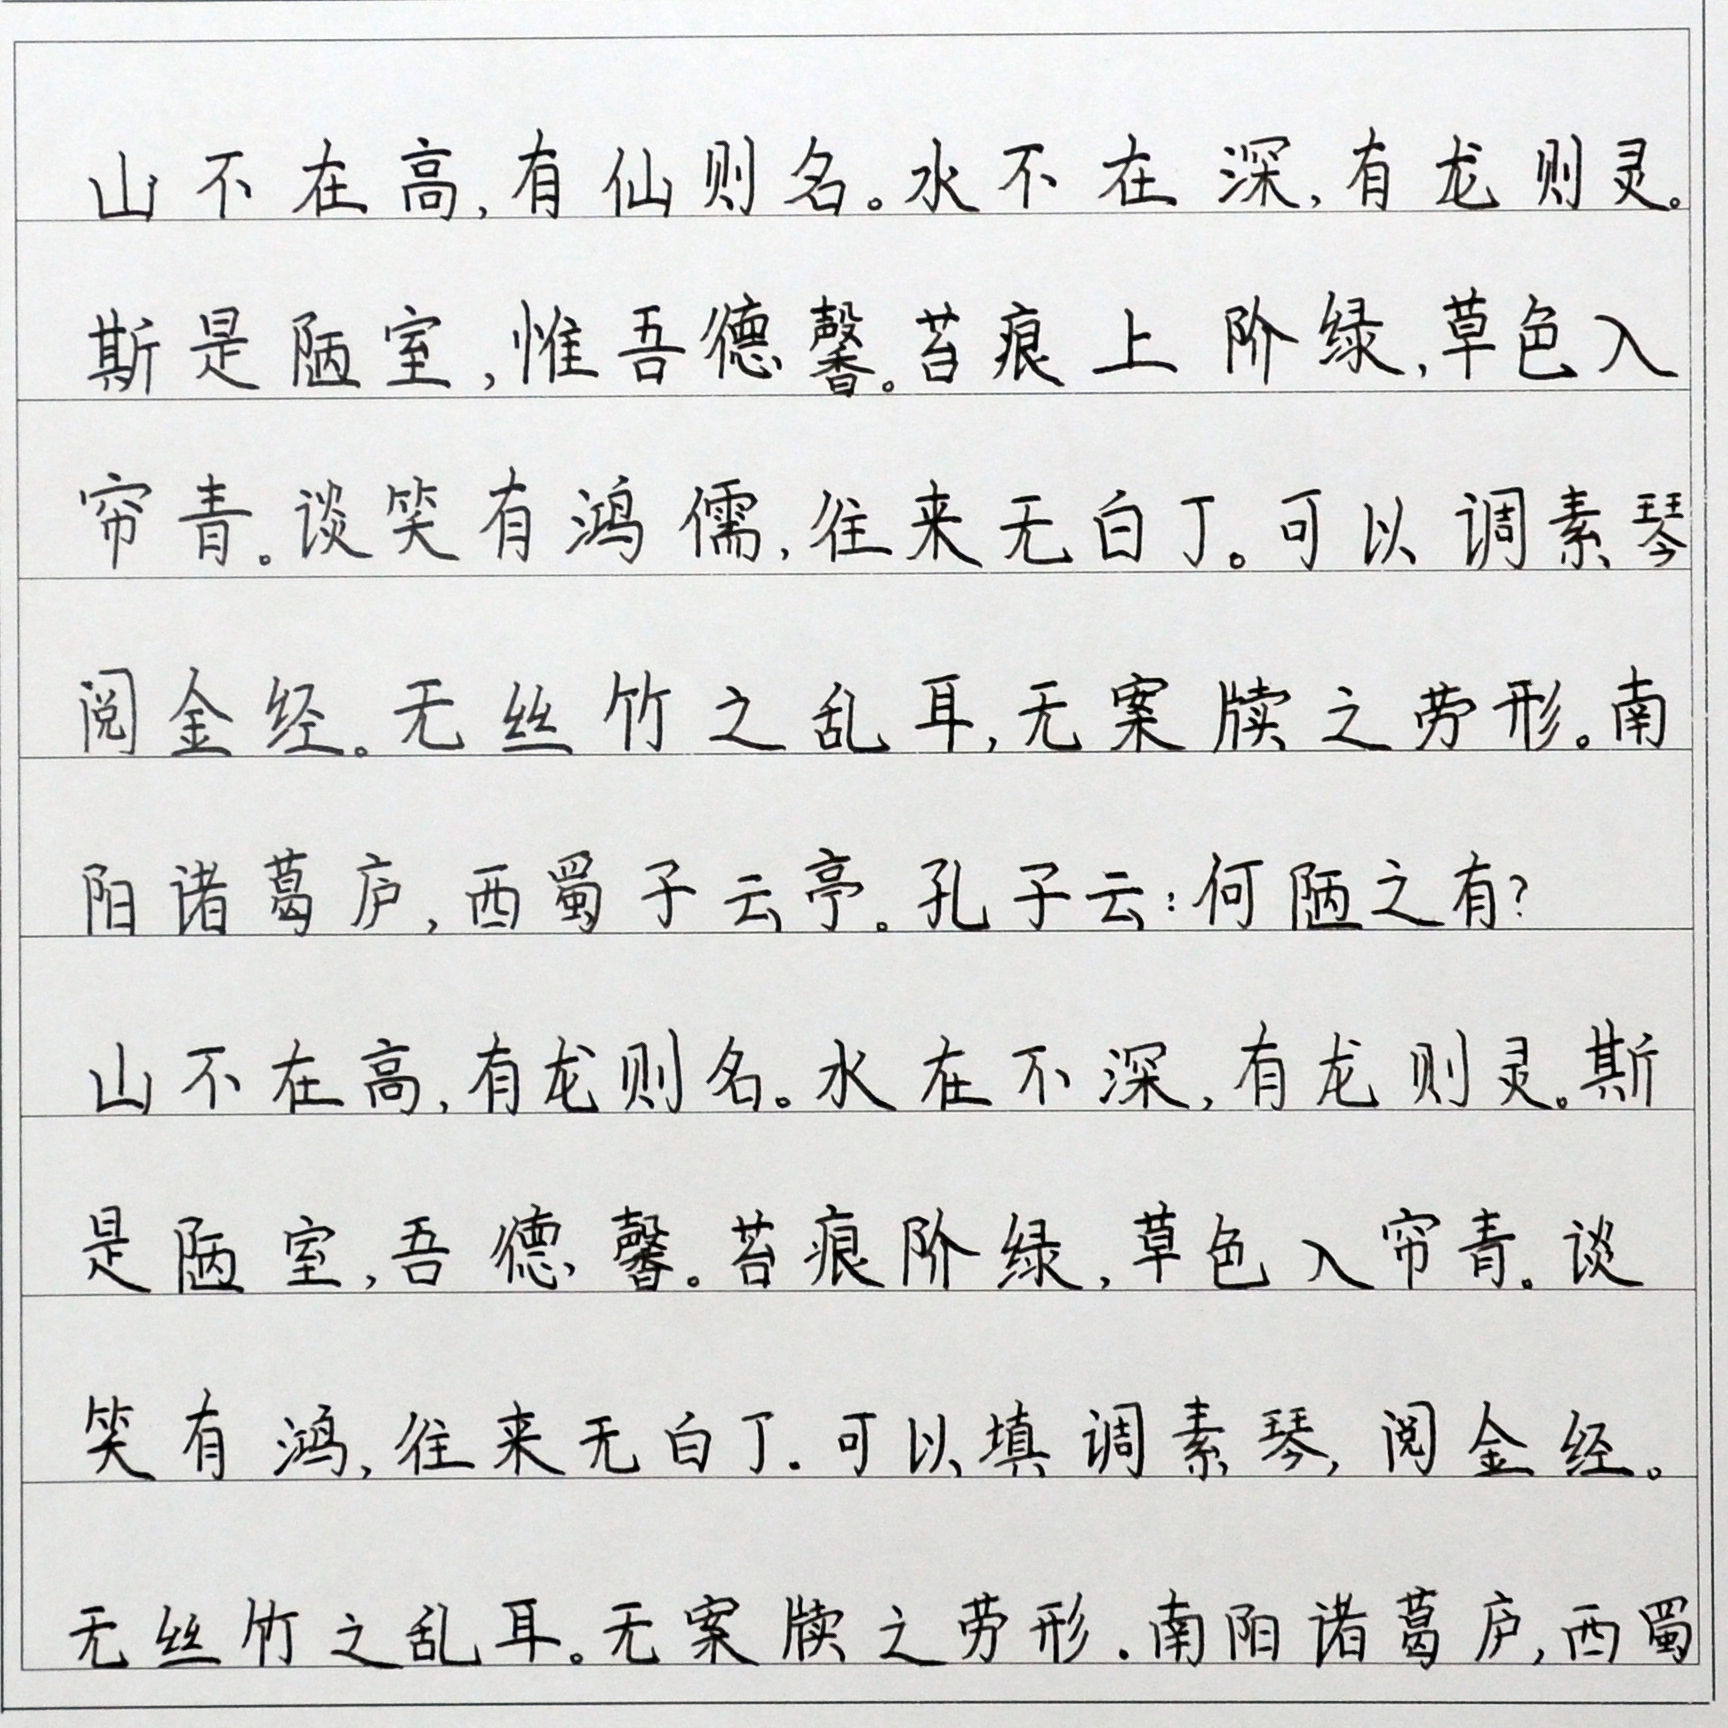 山不在高,有仙则名。水不在深,有龙则灵。
斯是陋室,惟吾德馨。苔痕上阶绿,草色入
帘青。谈笑有鸿儒,往来无白丁。可以调素琴
阅金经。无丝竹之乱耳,无案牍之劳形。南
阳诸葛庐,西蜀子云亭。孔子云:何陋之有?
山不在高,有龙则名。水在不深,有龙则灵。斯
是陋室,吾德馨。苔痕阶绿,草色入帘青。谈
笑有鸿,往来无白丁.可以填调素琴,阅金经。
无丝竹之乱耳。无案牍之劳形.南阳诸葛庐,西蜀